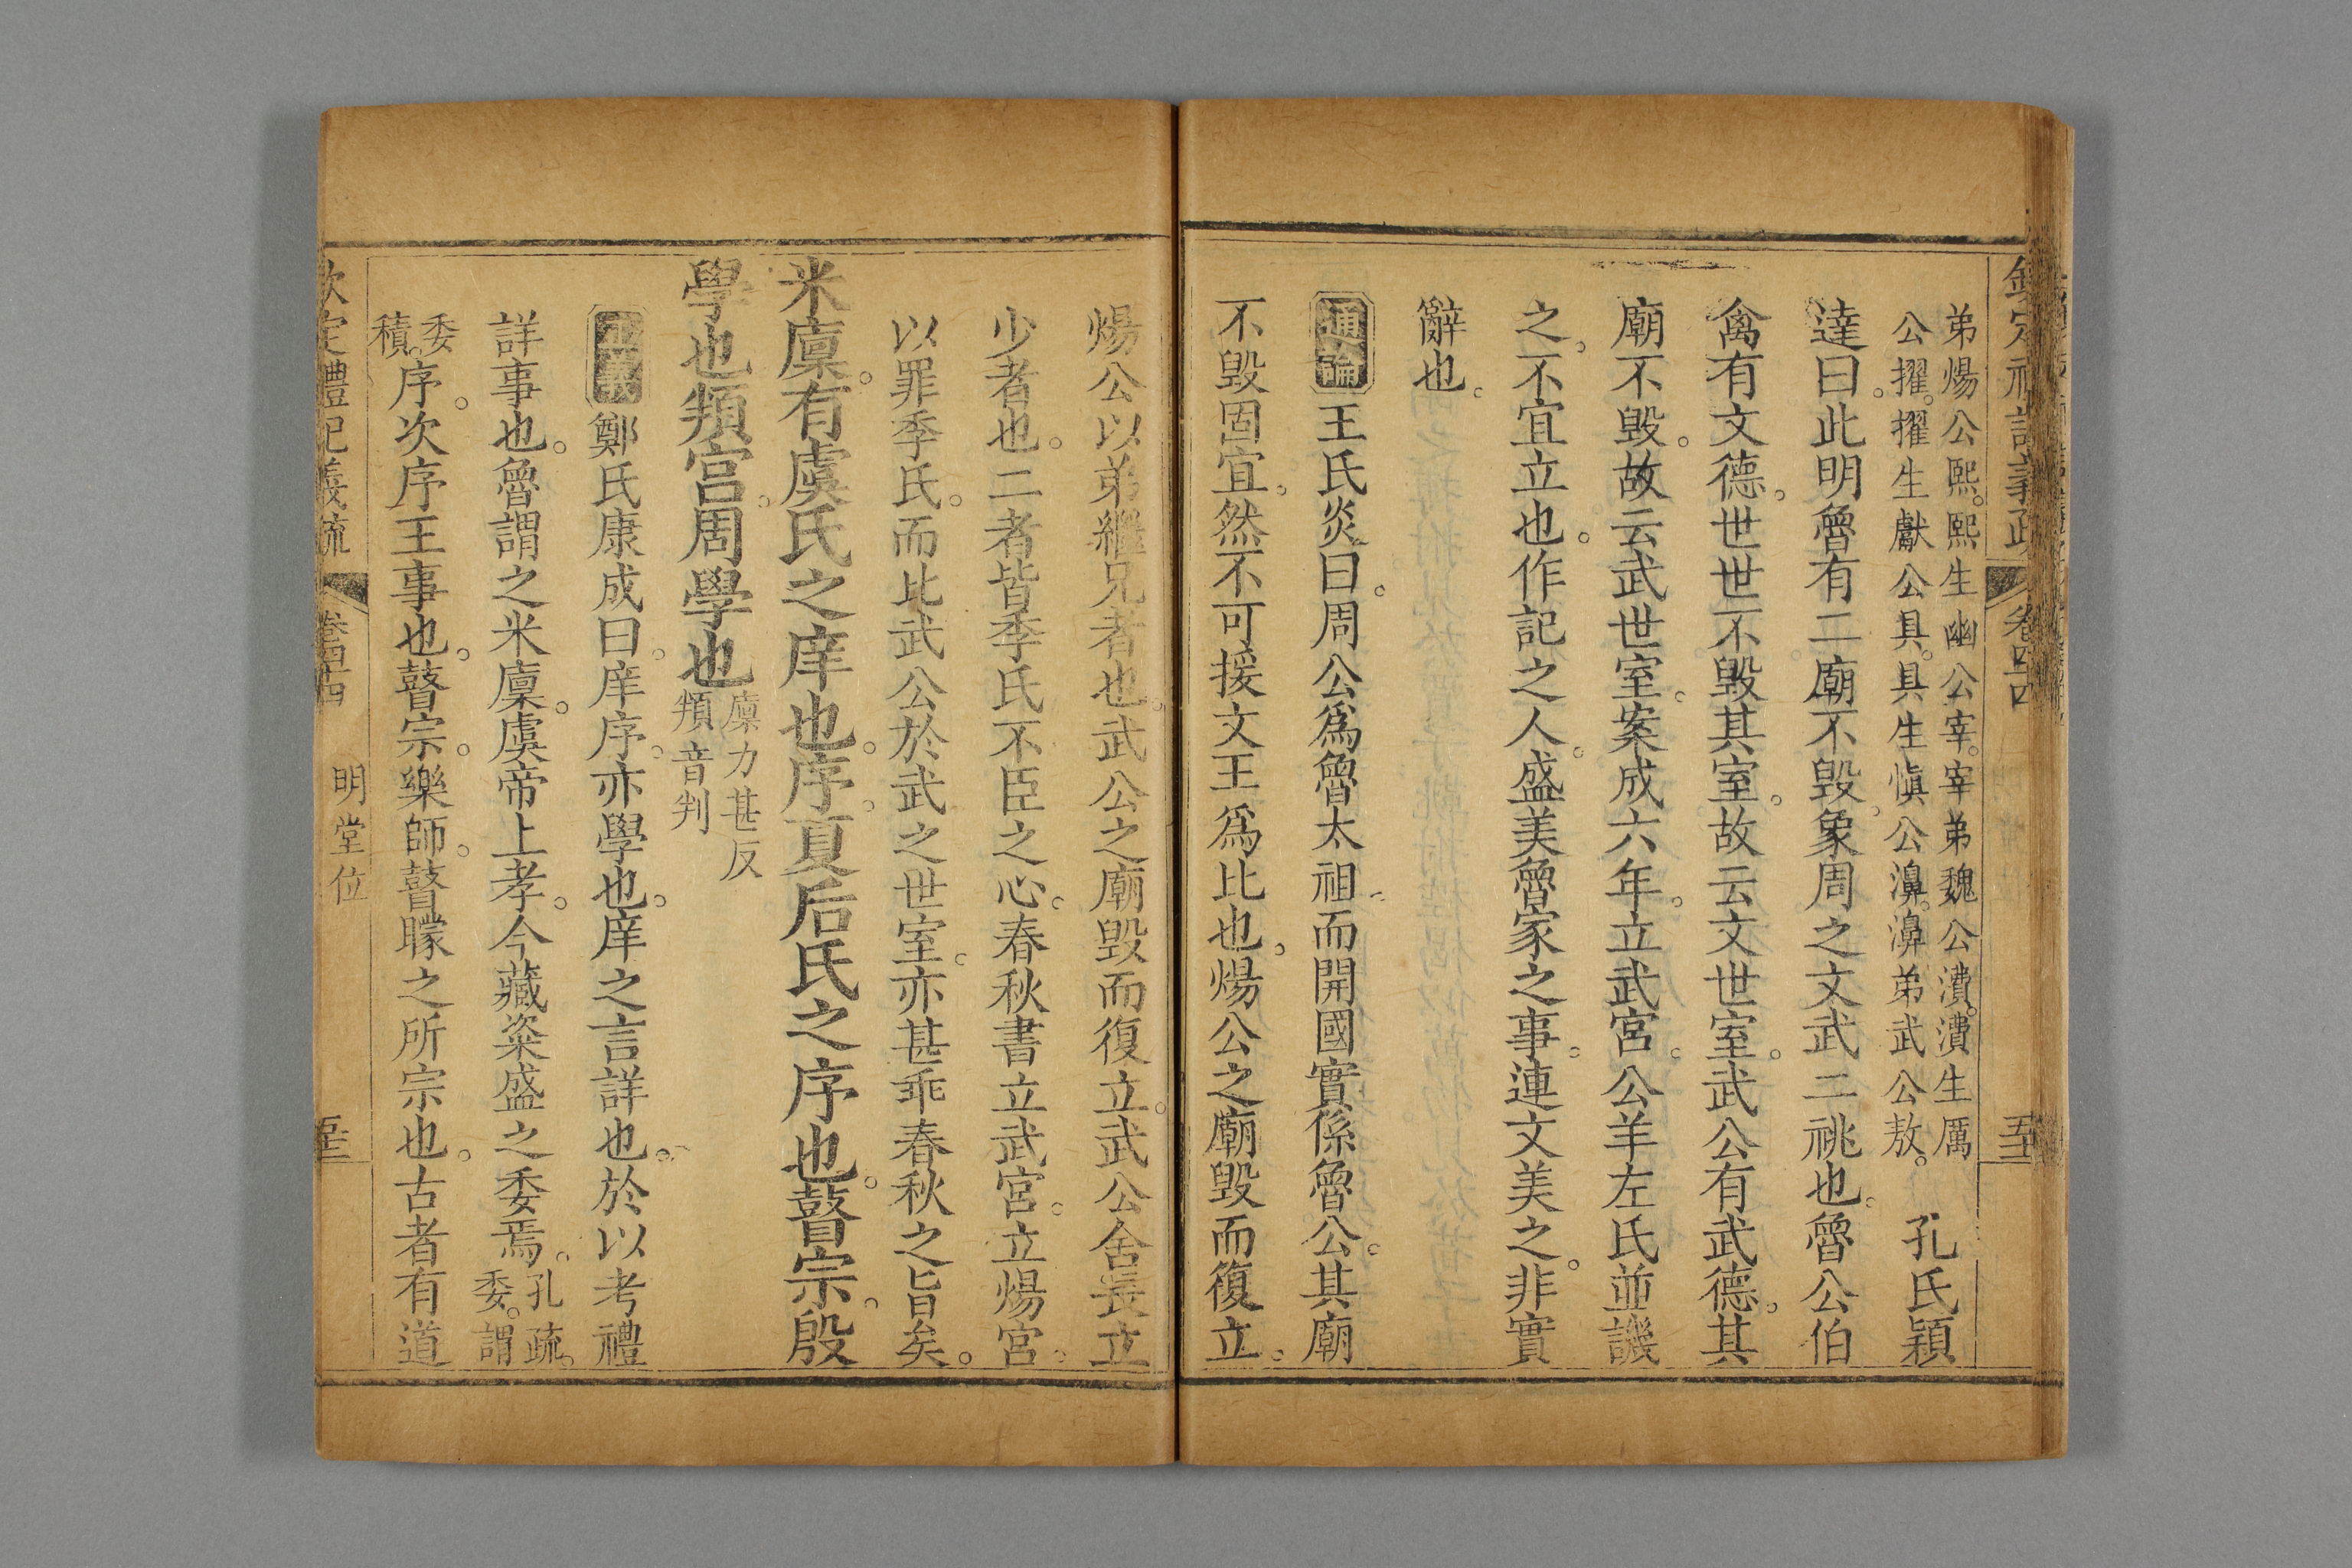 欽定禮記義疏 卷四十四 五十三
弟煬公熙。熙生幽公宰。宰弟魏公㵒。㵒生厲
公擢。擢生獻公具。具生愼公濞。濞弟武公敖。
孔氏穎
達曰。此明魯有二廟不毀。象周之文武二祧也。魯公伯
禽有文德。世世不毀其室。故云文世室。武公有武德。其
廟不毀。故云武世室。案成六年。立武宮。公羊左氏並譏
之。不宜立也。作記之人。盛美魯家之事。連文美之。非實
辭也。
通論 王氏炎曰。周公爲魯太祖。而開國實係魯公。其廟
不毀固宜。然不可援文王爲比也。煬公之廟毀而復立。
煬公以弟繼兄者也。武公之廟毀而復立。武公舍長立
少者也。二者皆季氏不臣之心。春秋書立武宮。立煬宮。
以罪季氏。而比武公於武之世室。亦甚乖春秋之旨矣。
米廩。有虞氏之庠也。序。夏后氏之序也。瞽宗。殷
學也。頖宮。周學也。
廩力甚反
頖音判
正義 鄭氏康成曰。庠序。亦學也。庠之言詳也。於以考禮
詳事也。魯謂之米廩。虞帝上孝。今藏粢盛之委焉。
孔疏。
委。謂
委
積。
序。次序王事也。瞽宗。樂師。瞽矇之所宗也。古者有道
欽定禮記義疏 卷四十四 明堂位